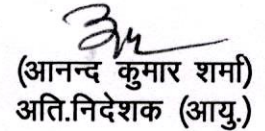 (आनन्द कुमार शर्मा)
अति.निदेशक (आयु.)